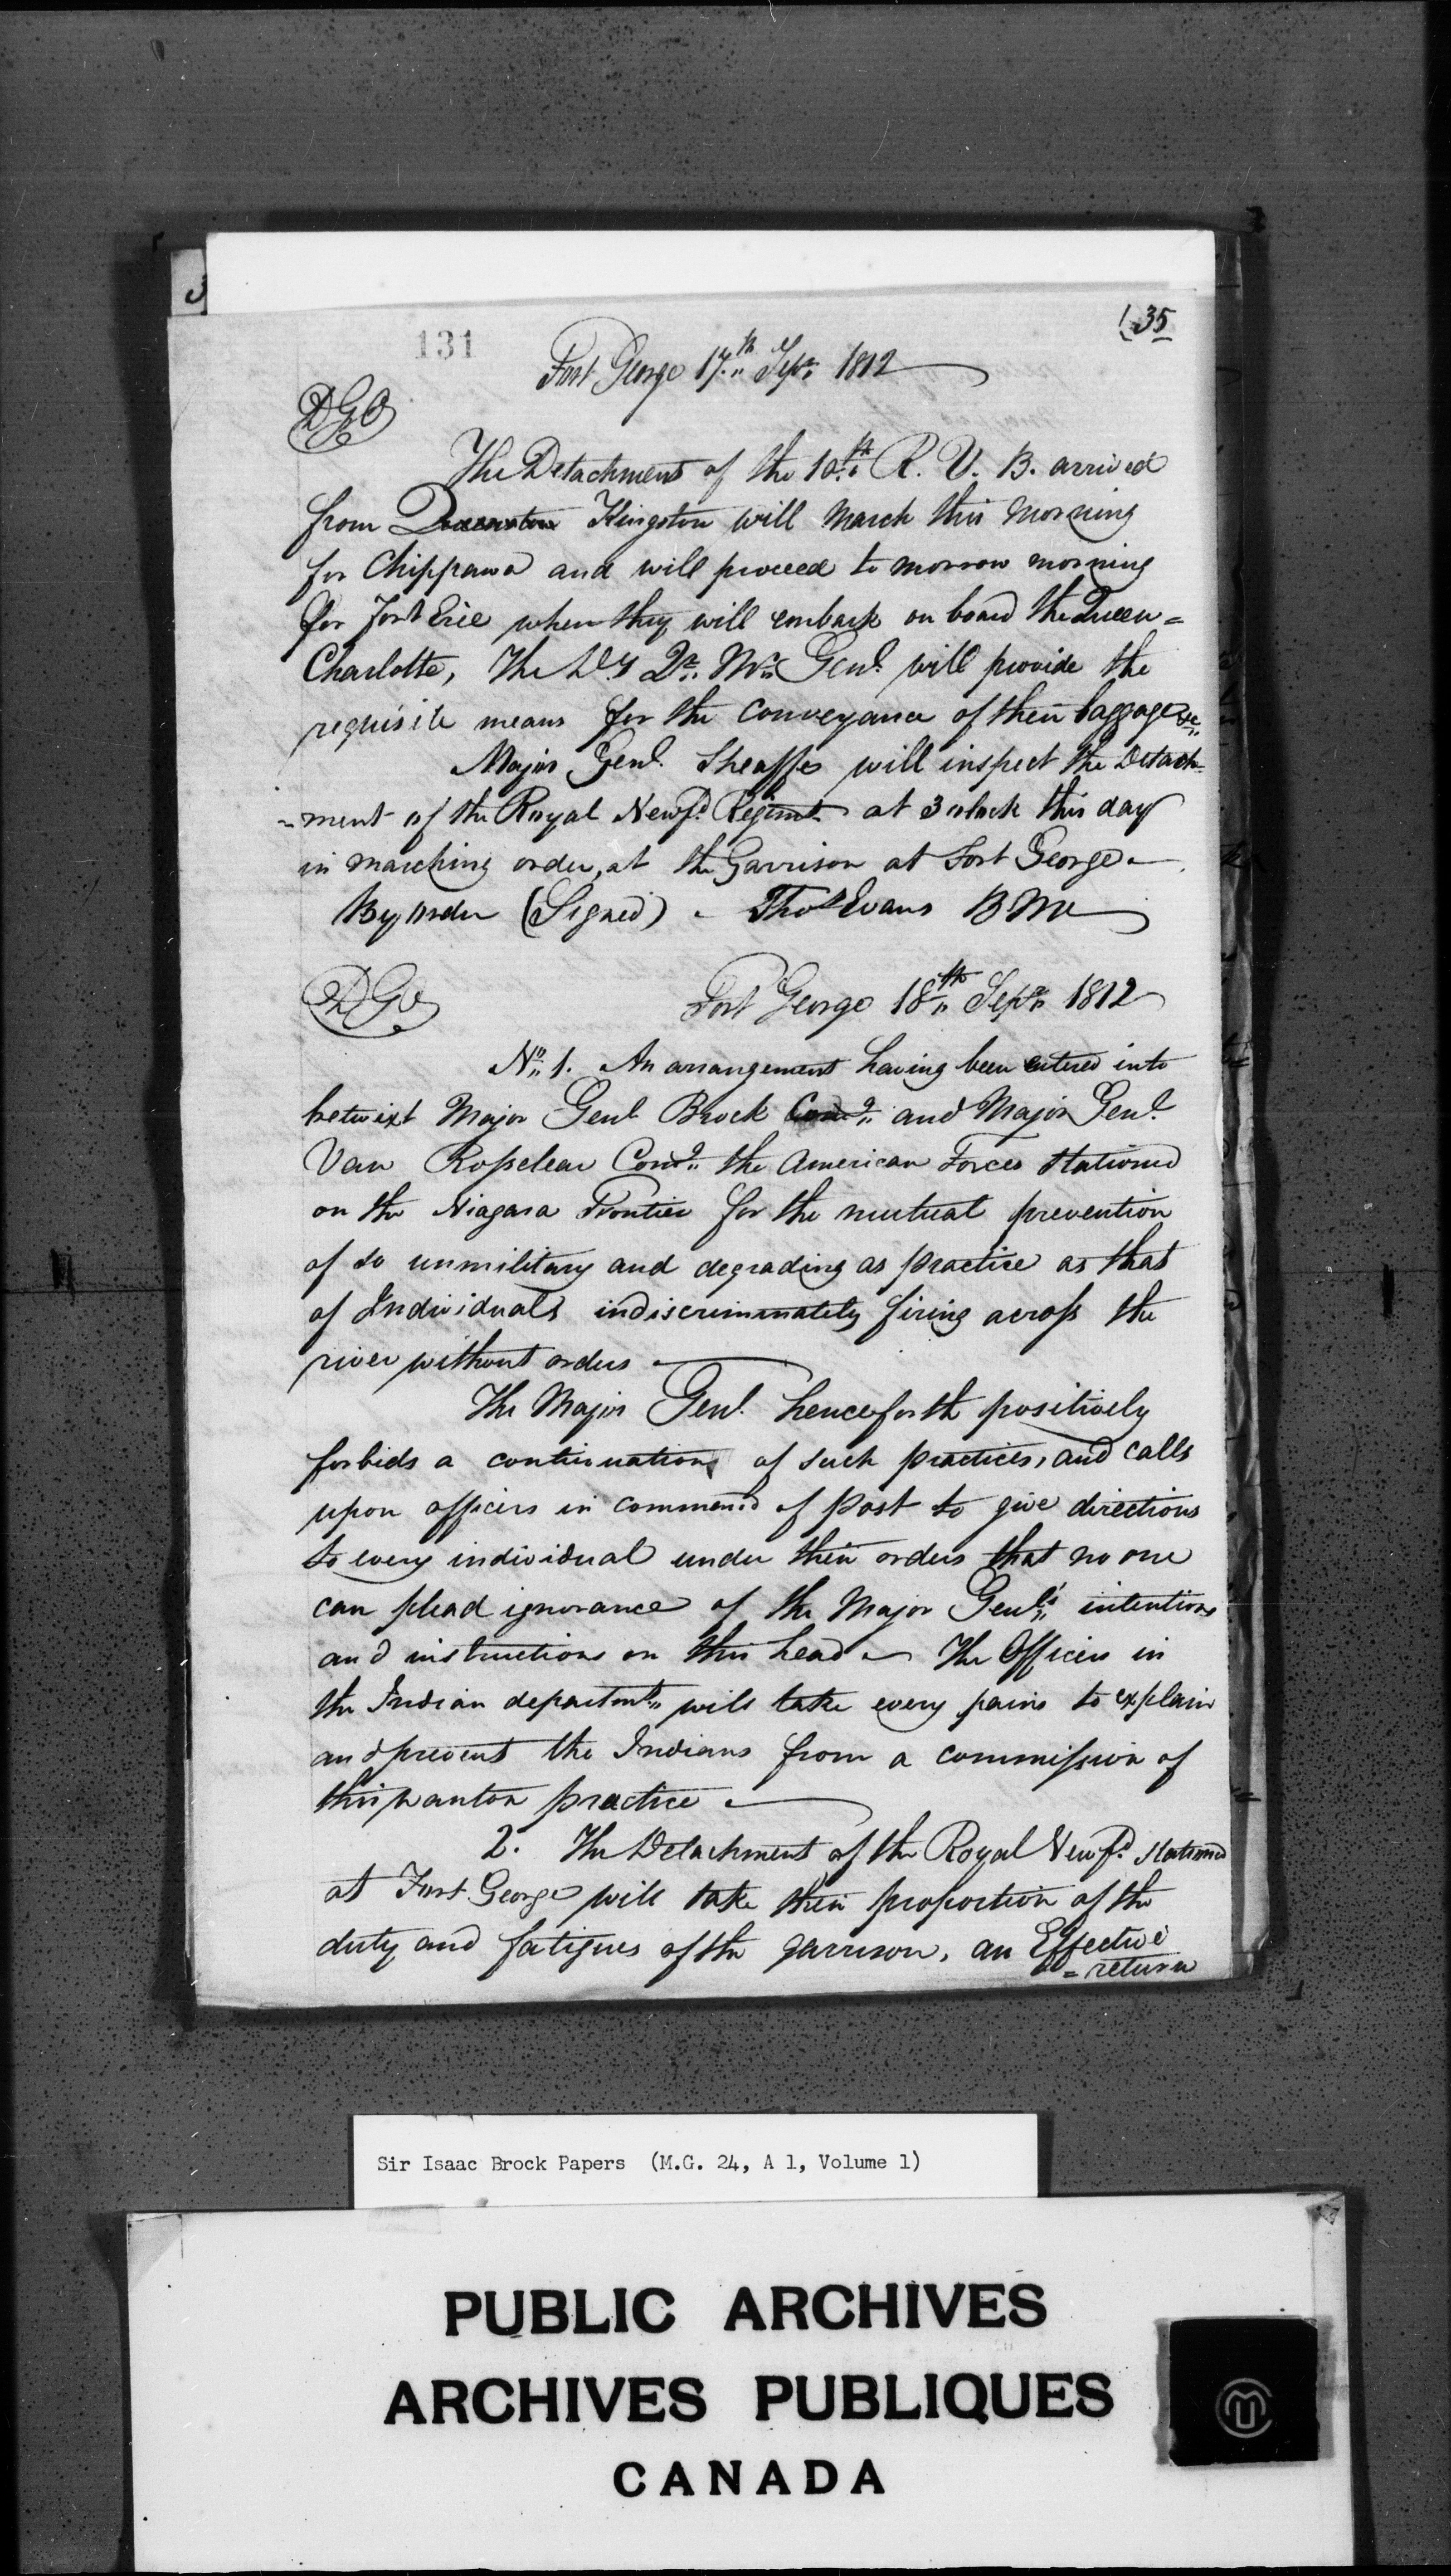 131
135
Fort George 17th Sepr 1812
DGO
The Detachment of the 10th R. V. B. arrived
from Kingston will March this morning
for Chippawa and will proceed to morrow morning
for Fort Erie when they will embark on board the Queen =
Charlotte, The Dy Qr Mr Genl will provide the
requisite means for the conveyance of their baggage &c
Major Genl Sheaffe will inspect the Detach=
=ment of the Royal Newfd Regimt at 3 oclock this day
in marching order, at the Garrison at Fort George
By order (Signed) Thos Evans B M
DGO
Fort George 18th Sepr 1812
No 1. An arrangement having been entered into
betwixt Major Genl Brock and Major Genl
Van Rosselear Comdg the American Forces Stationed
on the Niagara Frontier for the mutual prevention
of so unmilitary and degrading as practice as that
of Individuals indiscriminately firing across the
river without orders
The Major Genl henceforth positively
forbids a continuation of such practices, and calls
upon officers in command of post to give directions
to every individual under their orders that no one
can plead ignorance of the Major Genl's intentions
and instructions on this head The Officers in
the Indian departmt will take every pains to explain
and prevent the Indians from a commission of
this wanton practice
2. The Detachment of the Royal Newfd Stationed
at Fort George will take their proportion of the
duty and fatigues of the garrison, an Effective
=return
Sir Isaac Brock Papers (M.G. 24, A 1, Volume 1)
PUBLIC ARCHIVES
ARCHIVES PUBLIQUES
CANADA